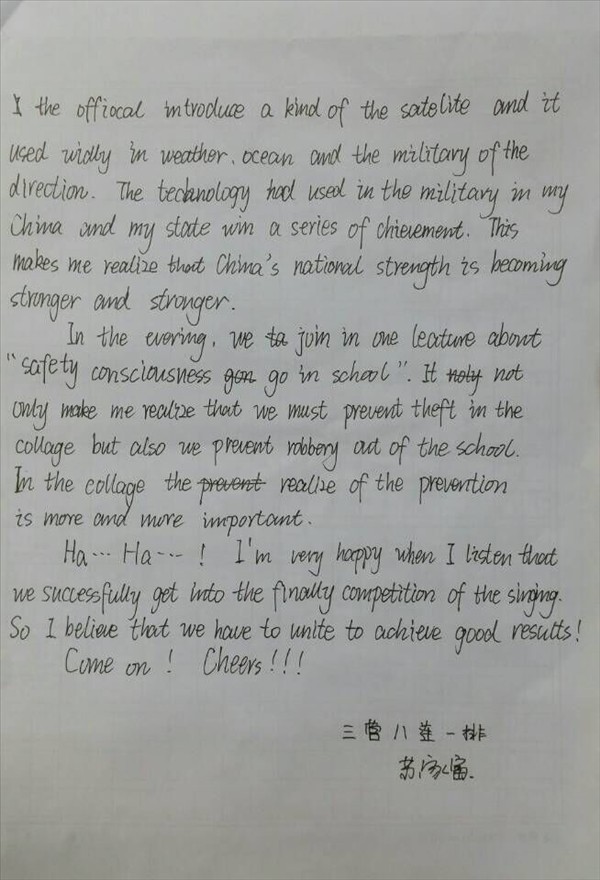 the officcal introduce a kind of the satelite and it
used widly in weather, ocean and the military of the
direction. The technology had used in the military in my
China and my state win a series of chievement. This
makes me realize that China's national strength is becoming
stronger and stronger.
In the evering, we ta join in one leature about
"safety consciousness gon go in school". It noly not
only make me realize that we must prevent theft in the
collage but also we prevent robbery out of the school.
In the collage the prevent realize of the prevention
is more and more important.
Ha... Ha...! I'm very happy when I listen that
we successfully get into the finally competition of the singing.
So I believe that we have to unite to achieve good results!
Come on! Cheers!!!
三营八连一排